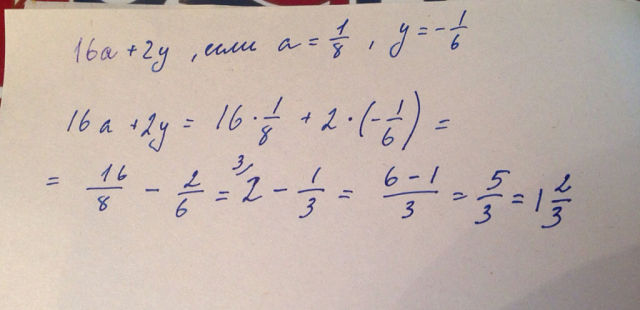 16a + 2y , если a = 1/8 , y = -1/6
16a + 2y = 16 · 1/8 + 2 · (-1/6) =
= 16/8 - 2/6 = 2 3/ - 1/3 = 6-1/3 = 5/3 = 1 2/3